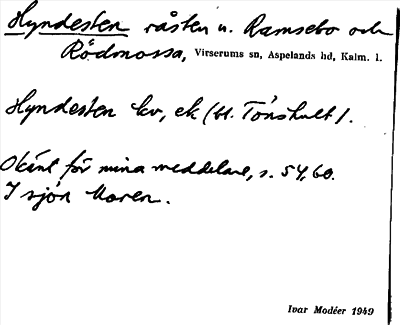 Hyndesten råsten u. Ramsebo och
Rödmossa, Virserums sn, Aspelands hd, Kalm. l.
Hyndesten kv, ek (bl. Tönshult).
Okänt för mina meddelare, s. 54, 60.
I sjön Maren.
Ivar Modéer 1949